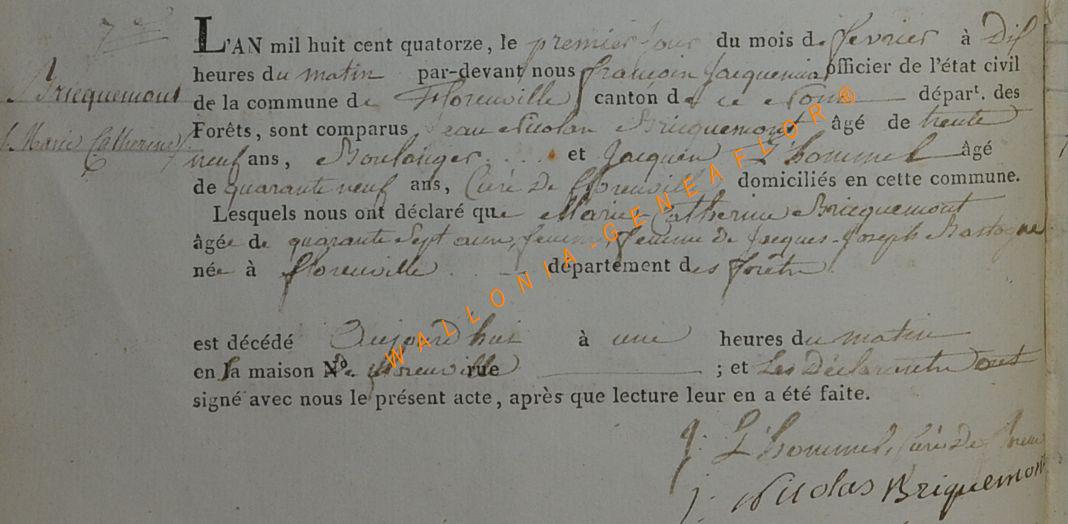 7.e
L'AN mil huit cent quatorze, le premier jour du mois de fevrier à Dix
heures du matin par-devant nous françois Jacquemin officier de l'état civil
Bricquemont
de la commune de Florenville canton de ce Nom départ. des
Forêts, sont comparus Jean Nicolas Bricquemont âgé de trente
Marie Catherine
neuf ans, Boulanger et Jacques L'hommel âgé
de quarante neuf ans, Curé de florenville domiciliés en cette commune.
Lesquels nous ont déclaré que Marie-Catherine Bricquemont
âgée de quarante Sept ans, femme de Jacques-Joseph Bastogne
née à florenville département des forêts
est décédé Aujourd'hui à une heures du matin
en Sa maison No. De florenville rue ; et Les Déclarants ont
signé avec nous le présent acte, après que lecture leur en a été faite.
J. L'hommel, Curé de
j. Nicolas Briquemont
WALLONIA-GENEAFLOR®